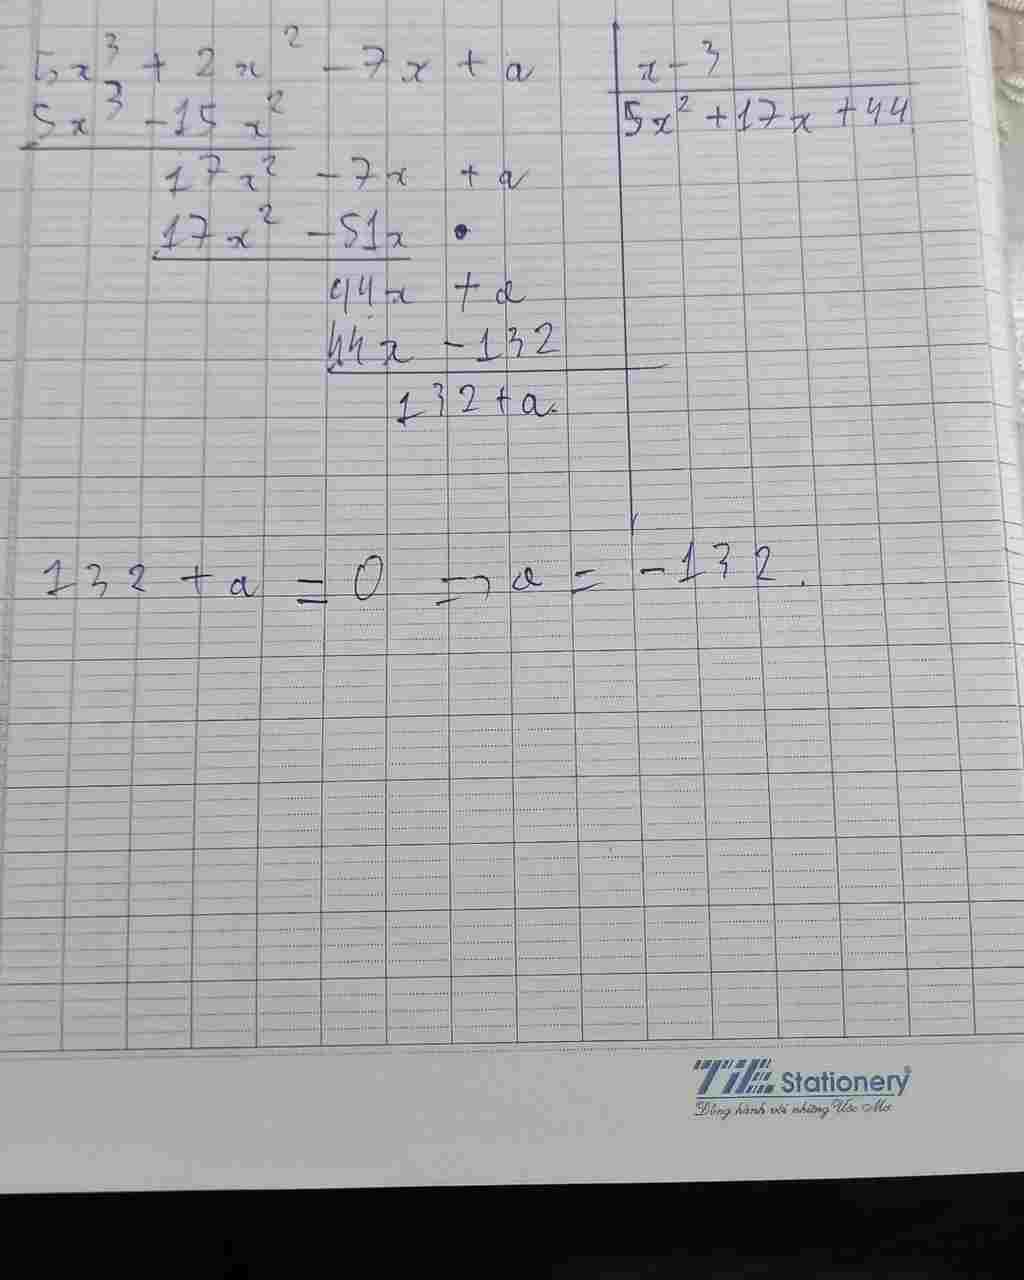 5x³ + 2x² - 7x + a | x - 3
5x³ - 15x² | 5x² + 17x + 44
17x² - 7x + a
17x² - 51x
44x + a
44x - 132
132 + a.
132 + a = 0 => a = -132.
TiE Stationery
Đồng hành với những Ước Mơ